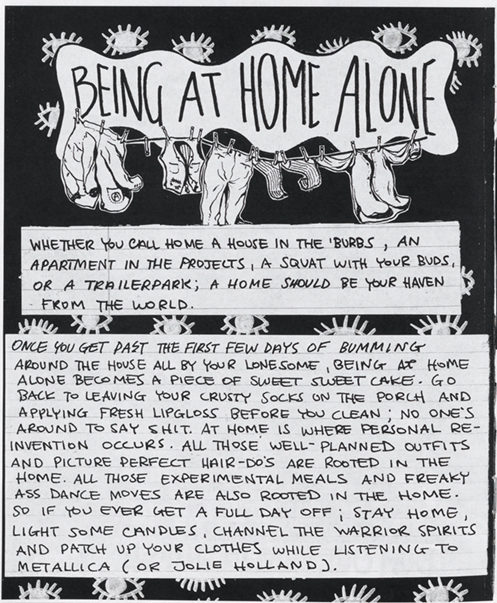 BEING AT HOME ALONE
WHETHER YOU CALL HOME A HOUSE IN THE 'BURBS, AN
APARTMENT IN THE PROJECTS, A SQUAT WITH YOUR BUDS,
OR A TRAILERPARK; A HOME SHOULD BE YOUR HAVEN
FROM THE WORLD.
ONCE YOU GET PAST THE FIRST FEW DAYS OF BUMMING
AROUND THE HOUSE ALL BY YOUR LONESOME, BEING AT HOME
ALONE BECOMES A PIECE OF SWEET SWEET CAKE. GO
BACK TO LEAVING YOUR CRUSTY SOCKS ON THE PORCH AND
APPLYING FRESH LIPGLOSS BEFORE YOU CLEAN; NO ONE'S
AROUND TO SAY SHIT. AT HOME IS WHERE PERSONAL RE-
INVENTION OCCURS. ALL THOSE WELL-PLANNED OUTFITS
AND PICTURE PERFECT HAIR-DO'S ARE ROOTED IN THE
HOME. ALL THOSE EXPERIMENTAL MEALS AND FREAKY
ASS DANCE MOVES ARE ALSO ROOTED IN THE HOME.
SO IF YOU EVER GET A FULL DAY OFF; STAY HOME,
LIGHT SOME CANDLES, CHANNEL THE WARRIOR SPIRITS
AND PATCH UP YOUR CLOTHES WHILE LISTENING TO
METALLICA (OR JOLIE HOLLAND).